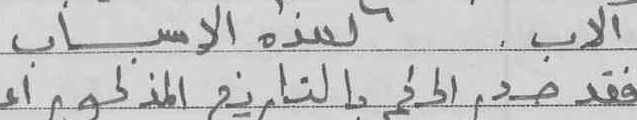 الاب . لهذه الاسباب
فقد صدر الحكم بالتاريخ المذكور اع